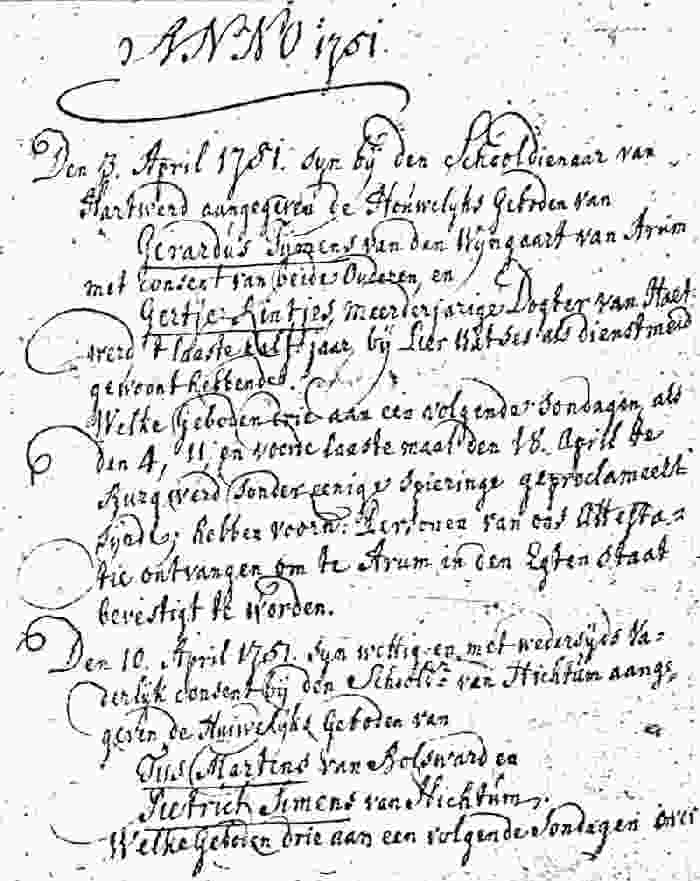 ANNO 1751.
Den 3. April 1751. syn bij den Schooldienaar van
Hartwerd aangegeven de Houwelyks Geboden van
Gerardus Tymens van den Wyngaart van Arum
met consent van beide Ouderen, en
Gertje Rintjes, meerderjarige Dogter van Hart-
werd 't laaste half jaar, bij Watses als dienstmeid
gewoont hebbende.
Welke Geboden drie aan een volgende Sondagen, als
den 4, 11, en voorts laaste maal den 18. April te
Burgwerd sonder eenige spieringe geproclameert
synde; hebben voorn: Personen van ons Attesta=
tie ontvangen om te Arum in den Egten Staat
bevestigt te worden.
Den 10. April 1751. syn wettig en met wedersyds Va=
derlijk consent bij den Schoold.r van Hichtum aange=
geven de Huiwelyks Geboden van
Martens van Bolsward en
Pietrick Simens van Hichtum.
Welke Geboden drie aan een volgende Sondagen over